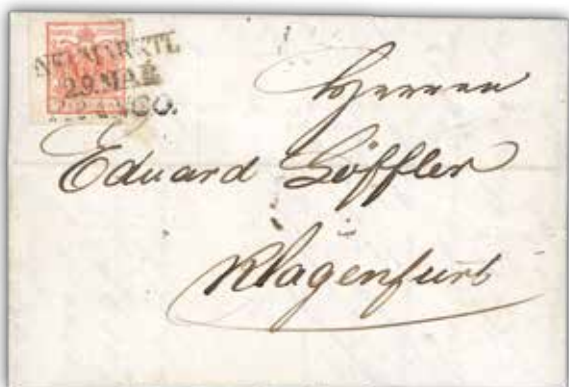 NEUMARKTL
29. MAI
FRANCO.
Herren
Eduard Löffler
Klagenfurt